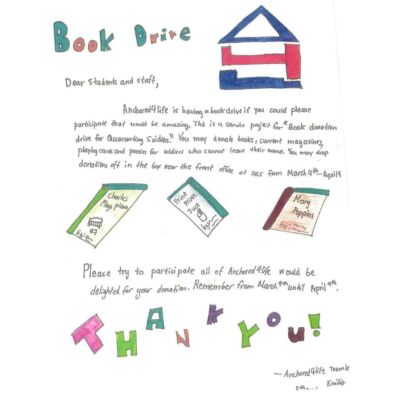 Book Drive
Dear Students and staff,
Anchored4life is having a book drive if you could please
participate that would be amazing. This is a service project for "Book donation
drive for Quarantine Soldiers." You may donate books, current magazines,
playing cards and puzzles for soldiers who cannot leave their home. You may drop
donations off in the box near the front office at SES from March 9th-April9
Charles
Mary
Poppins
Please try to participate all of Anchored4life would be
delighted for your donation. Remember from March 9th until April 9th.
THANK YOU!
—Anchored4life
Emilio